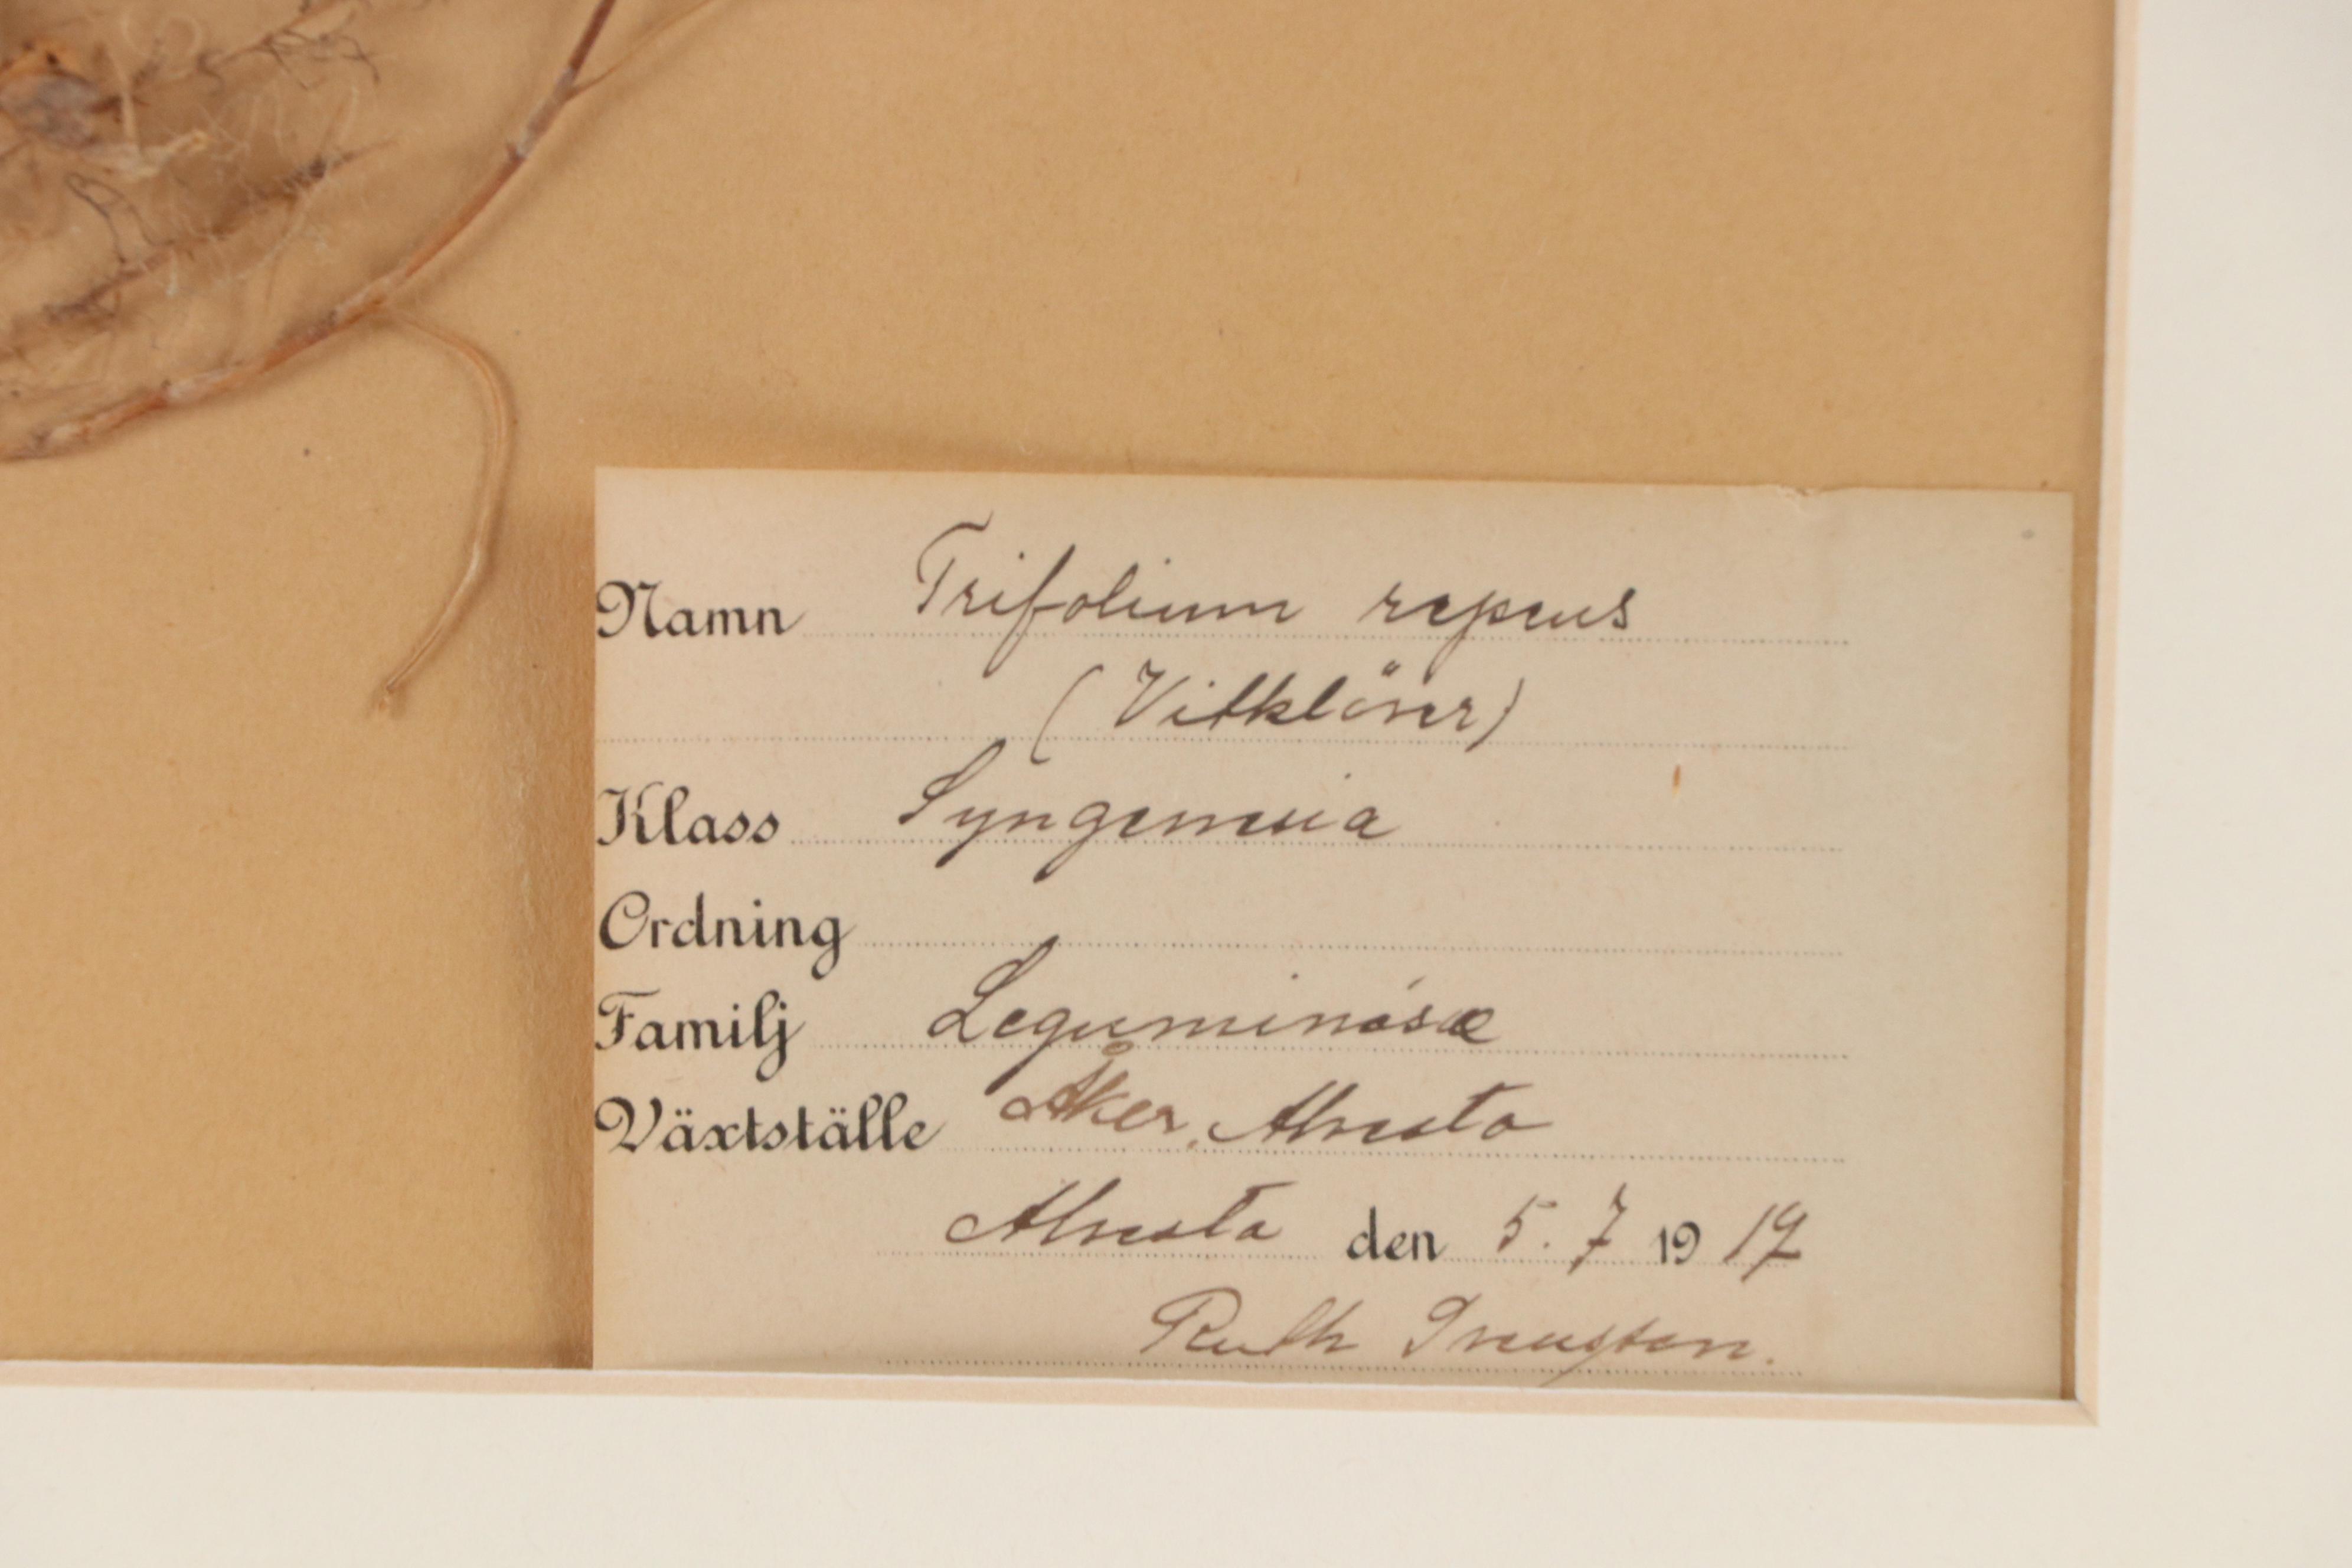 Namn Trifolium repens
(Vitklöver)
Klass Syngenesia
Ordning
Familj Leguminósæ
Växtställe Åker, Alvesta
Alvesta den 5. 7 1917
Ruth